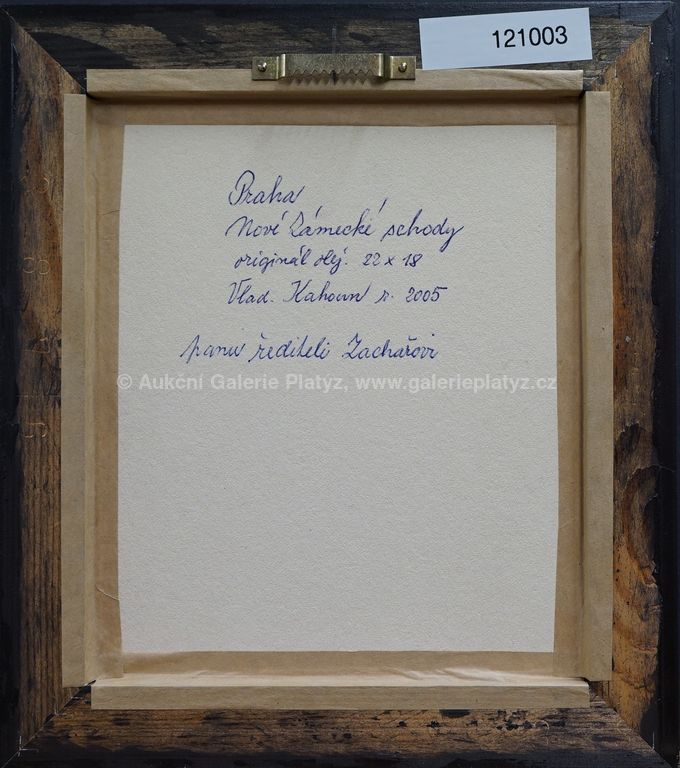 121003
Praha
Nové Zámecké schody
originál olej. 22 x 18
Vlad. Kahoun r. 2005
panu řediteli Zachařovi
© Aukční Galerie Platýz, www.galerieplatyz.cz